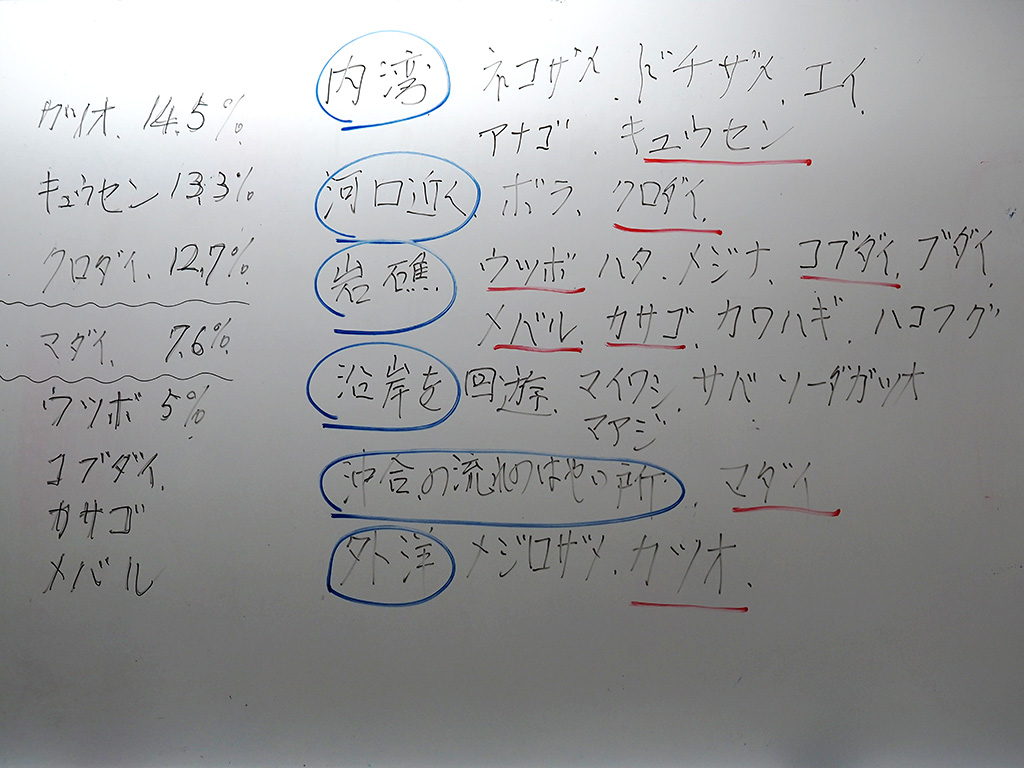 カツオ、14.5%
キュウセン 13.3%
クロダイ、12.7%
マダイ、 7.6%
ウツボ 5%
コブダイ、
カサゴ
メバル
内湾 ネコザメ、ドチザメ、エイ、
アナゴ、キュウセン
河口近く、ボラ、クロダイ、
岩礁、ウツボ ハタ、メジナ、コブダイ、ブダイ、
メバル、カサゴ、カワハギ、ハコフグ
沿岸を回遊、マイワシ、サバ、ソーダガツオ
マアジ
沖合の流れのはやい所、マダイ
外洋 メジロザメ、カツオ、